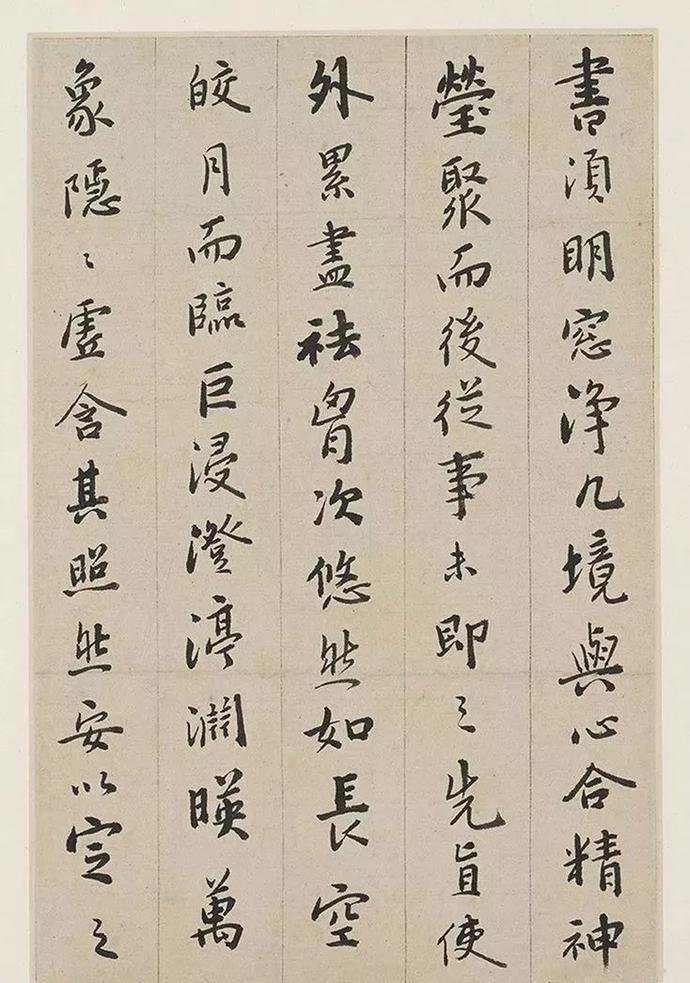 書須明窓浄几境與心合精神
瑩聚而後從事未即之先盲使
外累盡祛胷次悠然如長空
皎月而臨巨浸澄渟淵暎萬
象隠〻虚含其照然安以定之